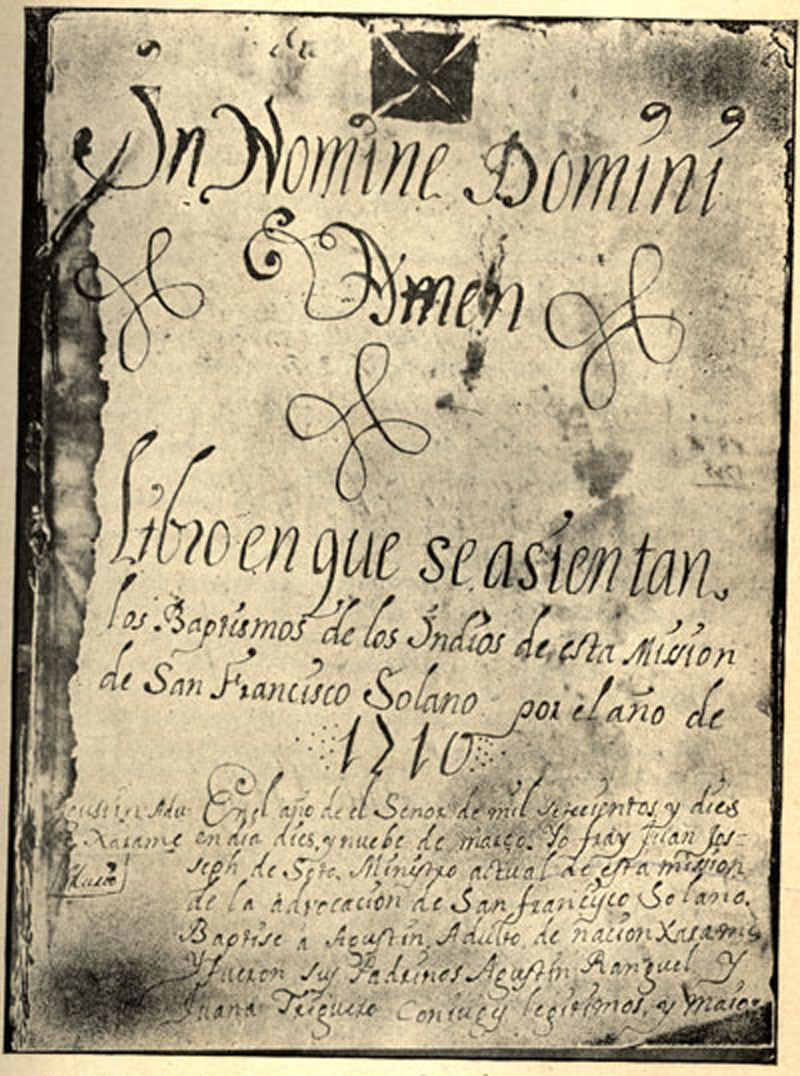 In Nomine Domini
Amen
Libro en que se asientan
los Baptismos de los Indios de esta Mission
de San Francisco Solano por el año de
1710
En el año de el Señor de mil setecientos y dies
Xarame en dia dies, y nuebe de março. Yo fray Juan Jos=
seph de Soto. Ministro actual de esta mission
de la advocacion de San francisco Solano.
Baptise a Agustin Adulto de nacion Xarame
Y fueron sus Padrinos Agustin Ranguel Y
Juana Triguero Conjuges legitimos, y